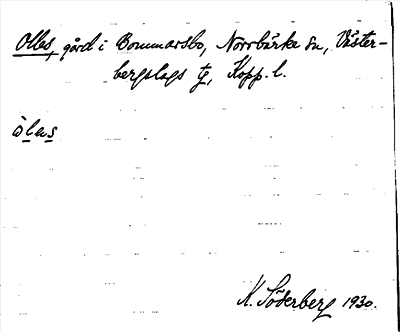 Olles, gård i Bommarsbo, Norrbärke sn, Väster-
bergslags tg, Kopp. l.
òlas
K. Söderberg 1930.